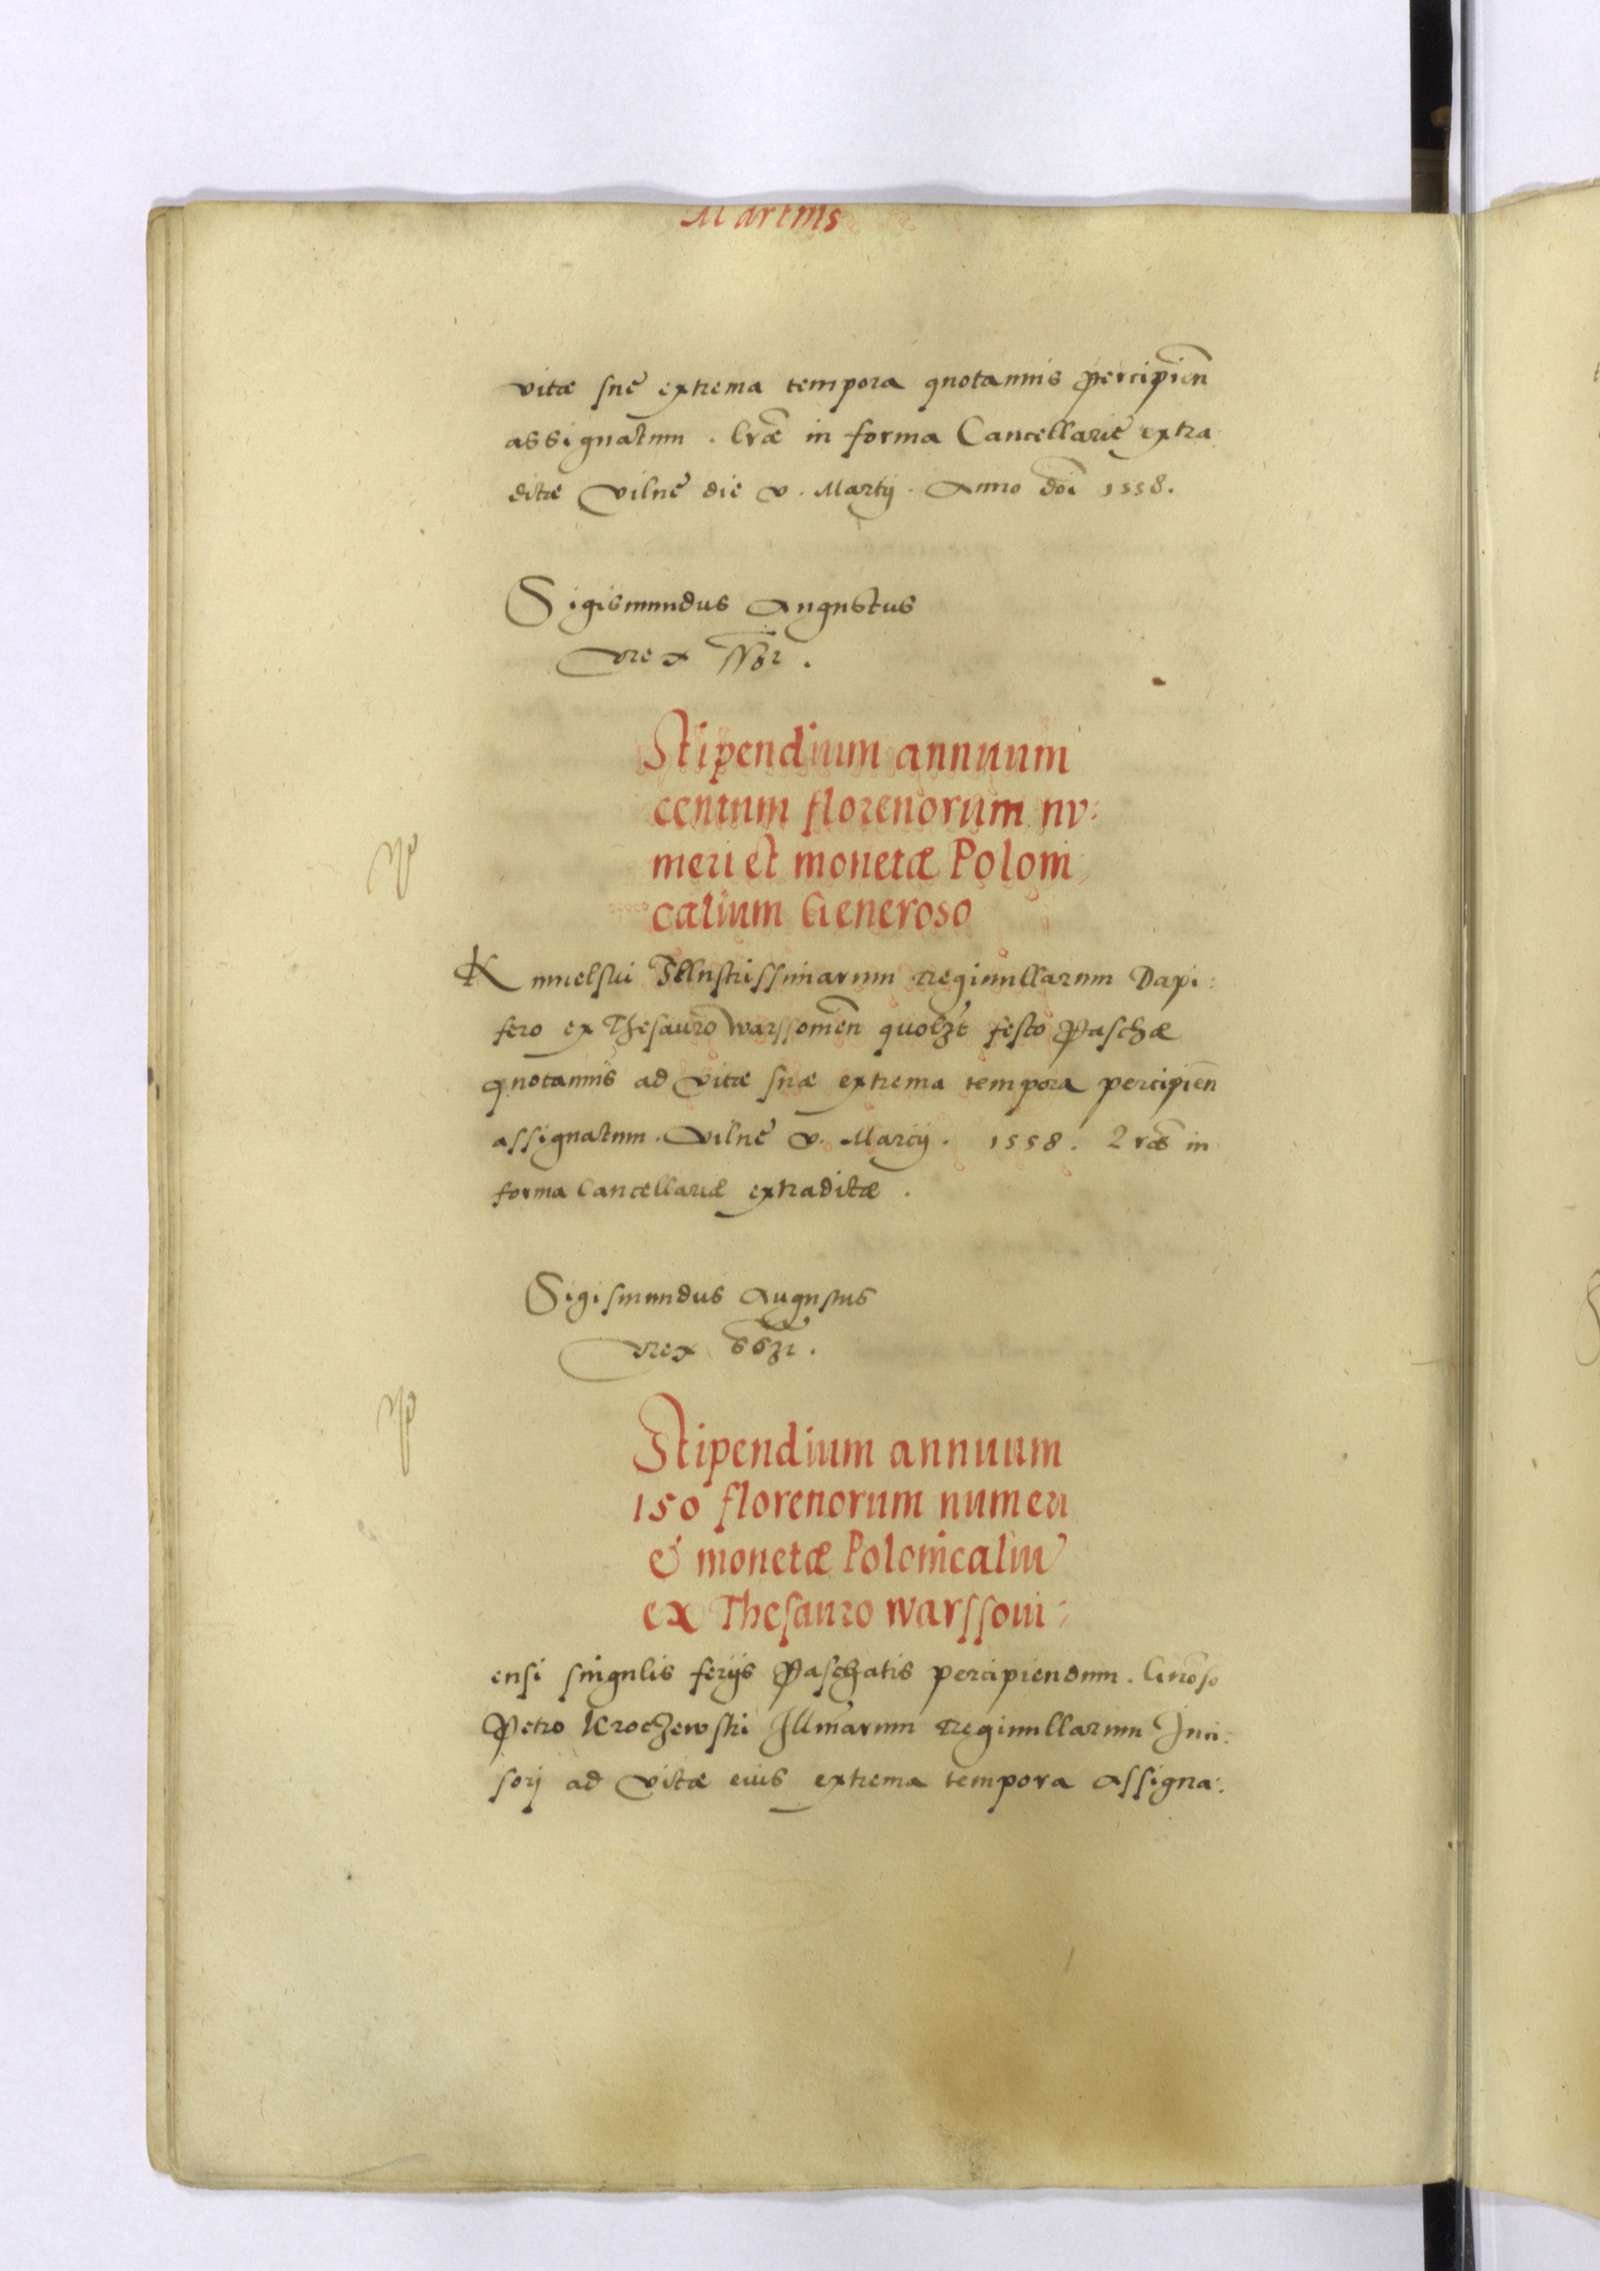 Martius
vitæ suę extrema tempora quotannis percipien̄
assignatum. Lr̄æ in forma Cancellarię extra
ditæ Vilnę die v. Martij. Anno dōi 1558.
Sigismundus Augustus
Rex
Stipendium annuum
centum florenorum nu:
meri et monetæ Poloni
calium Generoso
Illustrissimarum Reginullarum Dapi:
fero ex Thesauro Warssouien̄ quolz̄t festo Paschæ
quotannis ad vitæ suæ extrema tempora percipien̄
assignatum. Vilnę v. Martij. 1558. Lr̄æ in
forma Cancellariæ extraditæ.
Sigismundus Augustus
Rex
Stipendium annuum
150 florenorum numeri
& monetæ Polonicaliū
ex Thesauro Warssoui:
ensi singulis ferijs Paschatis percipiendum. Gnōso
Petro Kroczewski Illm̄arum Reginullarum Inci:
sorj ad vitæ eius extrema tempora assigna: